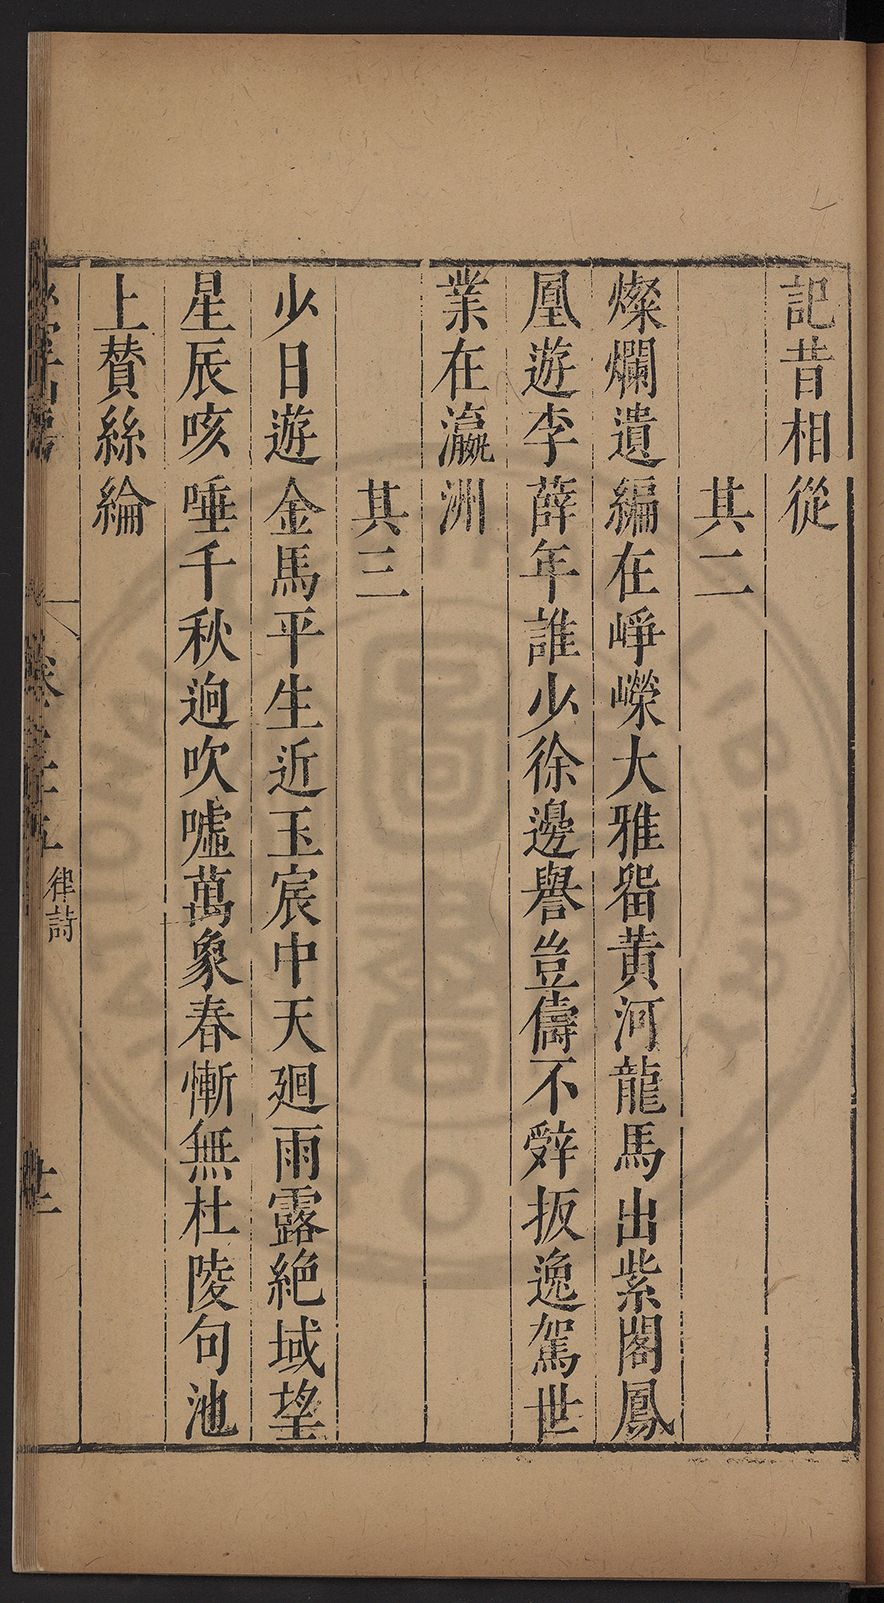 記昔相從
其二
燦爛遺編在崢嶸大雅畱黄河龍馬出紫閣鳳
凰遊李薛年誰少徐邊譽豈儔不辤扳逸駕世
業在瀛洲
其三
少日遊金馬平生近玉宸中天廻雨露絶域望
星辰咳唾千秋逈吹噓萬象春慚無杜陵句池
上賛絲綸
律詩